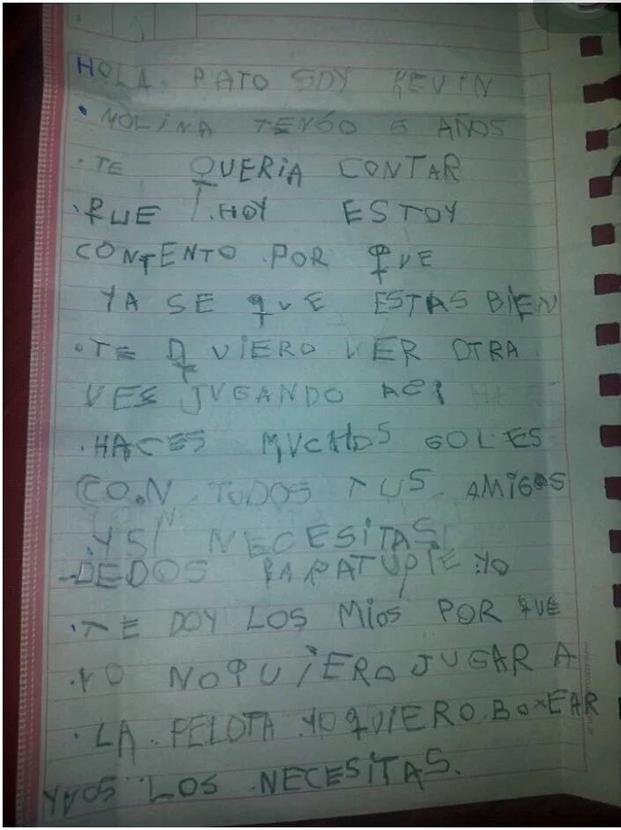 HOLA. PATO SOY KEVIN
· MOLINA TENGO 6 AÑOS
· TE QUERIA CONTAR
· QUE HOY ESTOY
CONTENTO POR QUE
YA SE QUE ESTAS BIEN
· TE QUIERO VER OTRA
VES JUGANDO ACI
· HACES MUCHOS GOLES
CON TODOS TUS AMIGOS
· Y SI NECESITAS
- DEDOS PARA TU PIE YO
· TE DOY LOS MIOS POR QUE
· YO NO QUIERO JUGAR A
· LA PELOTA YO QUIERO BOXEAR
LOS NECESITAS.